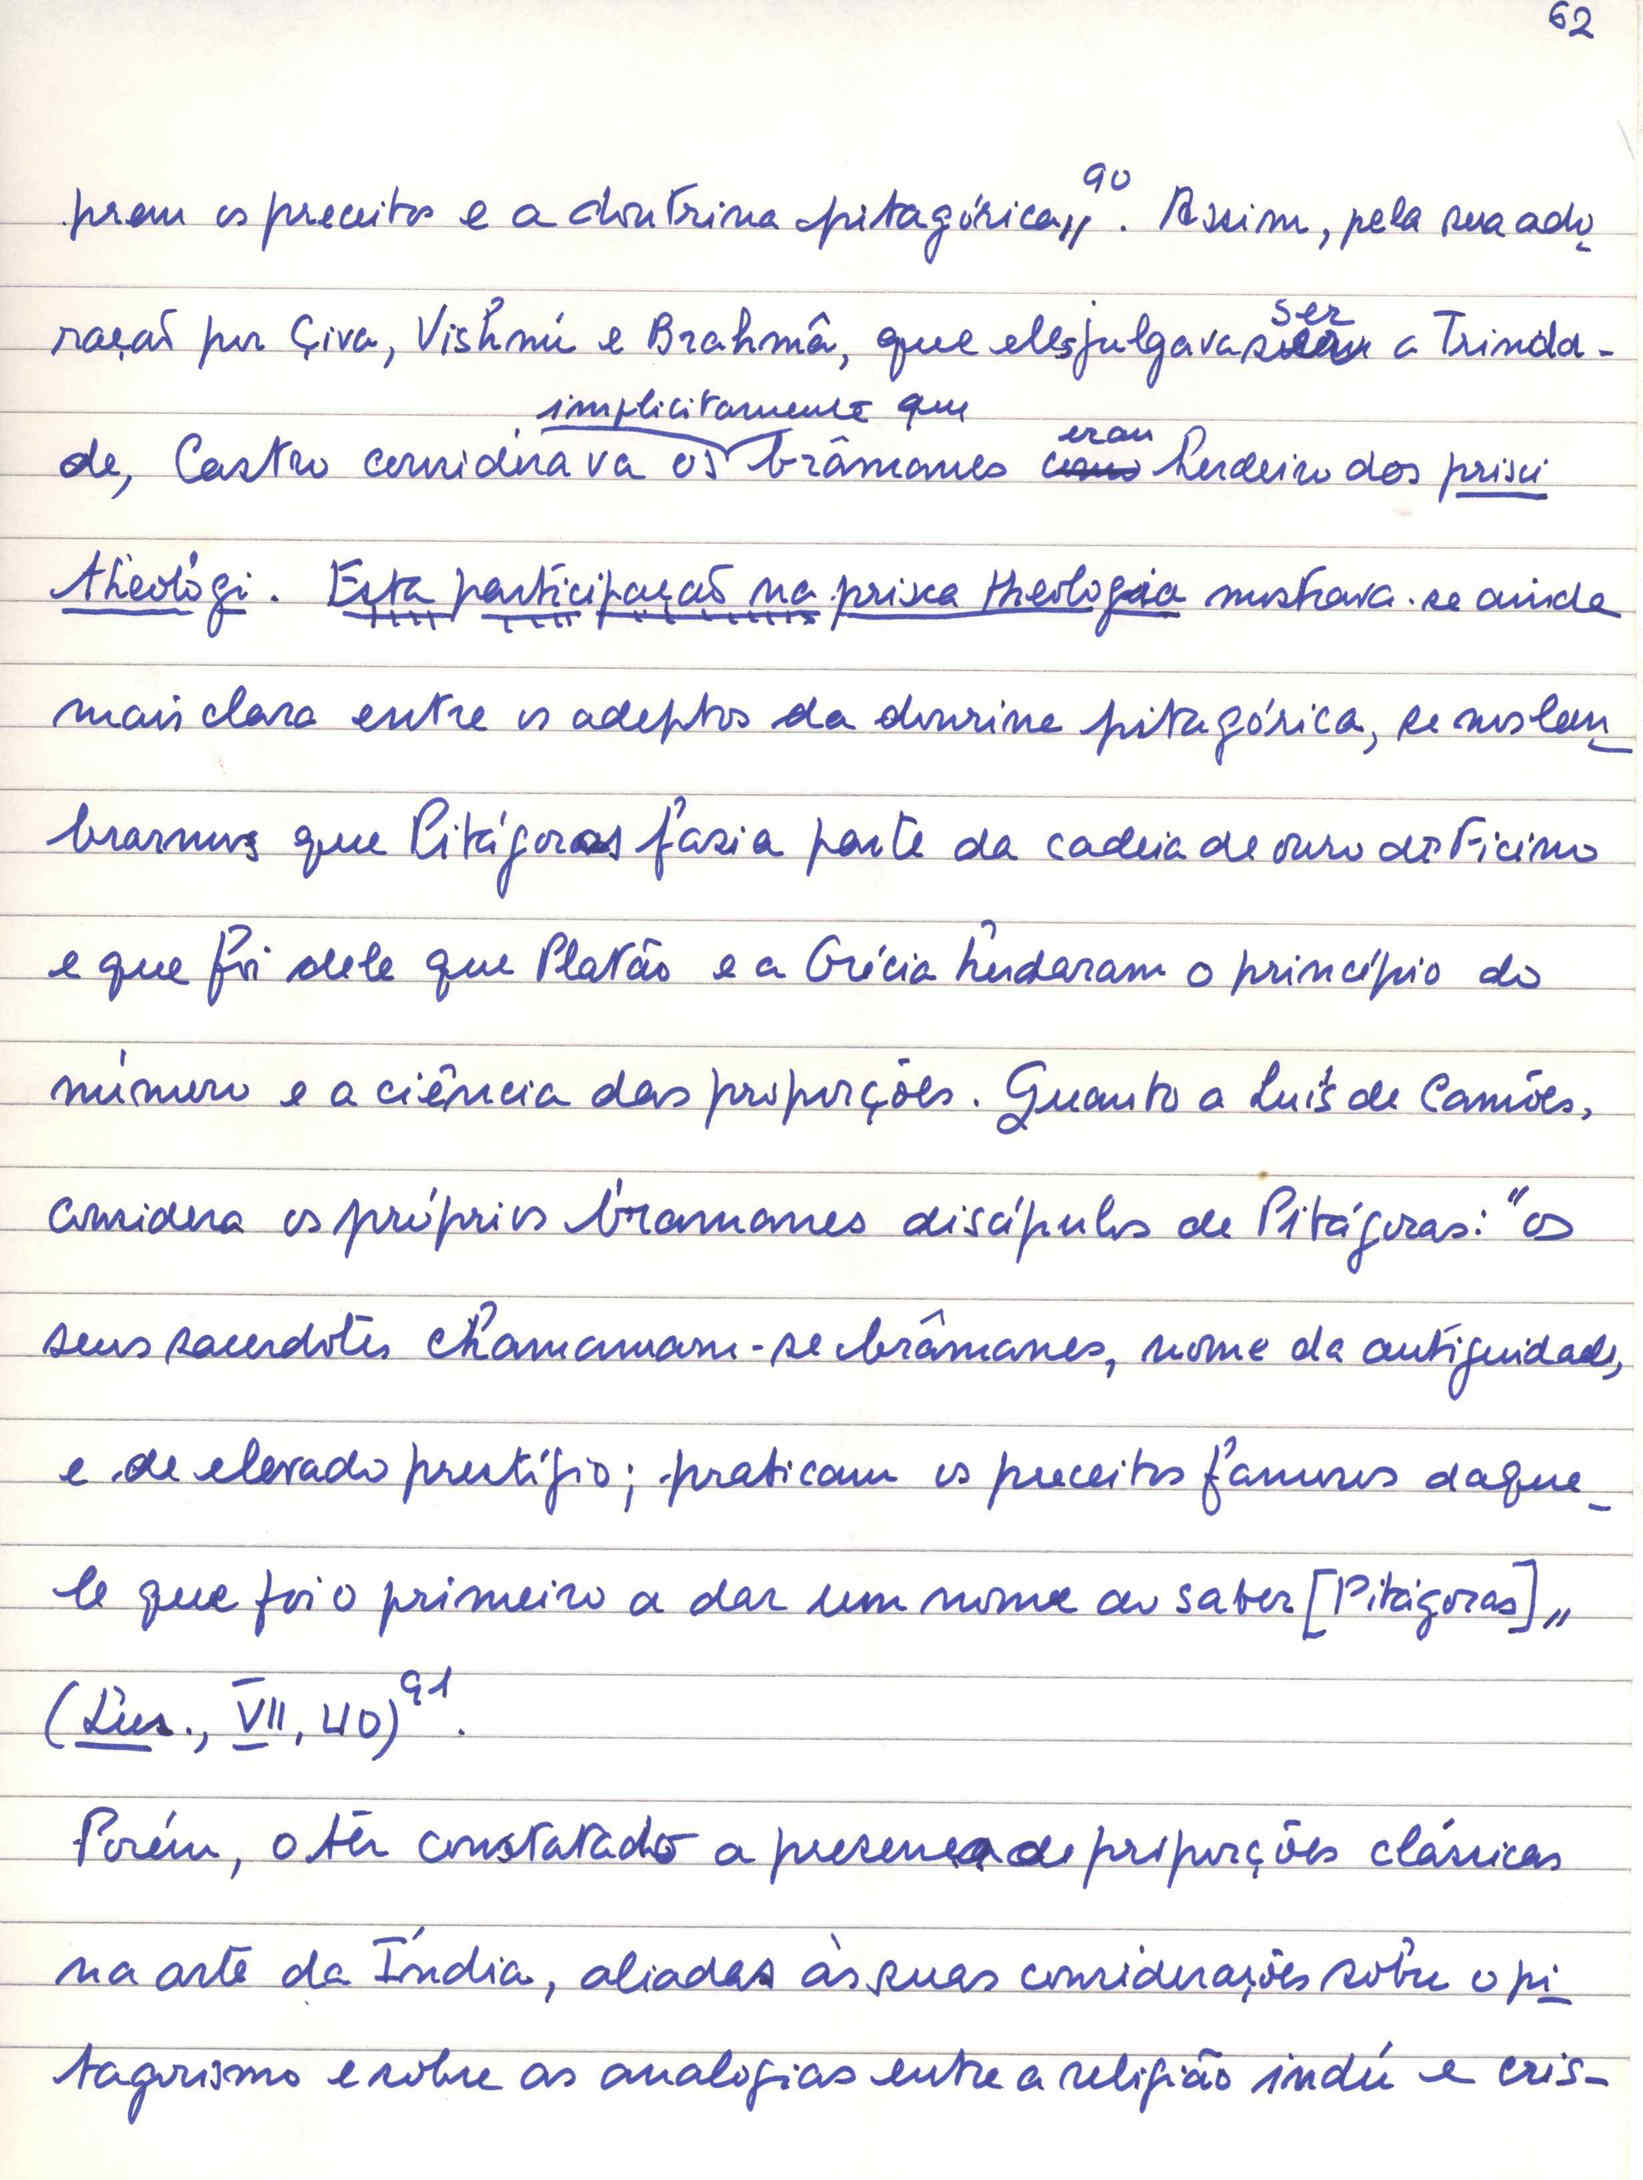 62
prem os preceitos e a doutrina pitagórica„90. Assim, pela sua ado-
ração por Çiva, Vishnú e Brahmâ, que eles julgavam ser a Trinda-
implicitamente que
de, Castro considerava os brâmanes eram herdeiro dos prisci
theológi. Esta participação na prisca theologia mostrava-se ainda
mais clara entre os adeptos da dourina pitagórica, se nos lem-
brarmos que Pitágoras fazia parte da cadeia de ouro de Ficino
e que foi dele que Platão e a Grécia herdaram o princípio do
número e a ciência das proporções. Quanto a Luís de Camões,
considera os próprios bramanes discípulos de Pitágoras: "os
seus sacerdotes chamamam-se brâmanes, nome da antiguidade,
e de elevado prestígio; praticam os preceitos famosos daque-
le que foi o primeiro a dar um nome ao saber [Pitágoras]„
(Lus., VII, 40)91.
Porém, o ter constatado a presença de proporções clássicas
na arte da Índia, aliadas às suas considerações sôbre o pi-
tagorismo e sobre as analogias entre a religião indú e cris-